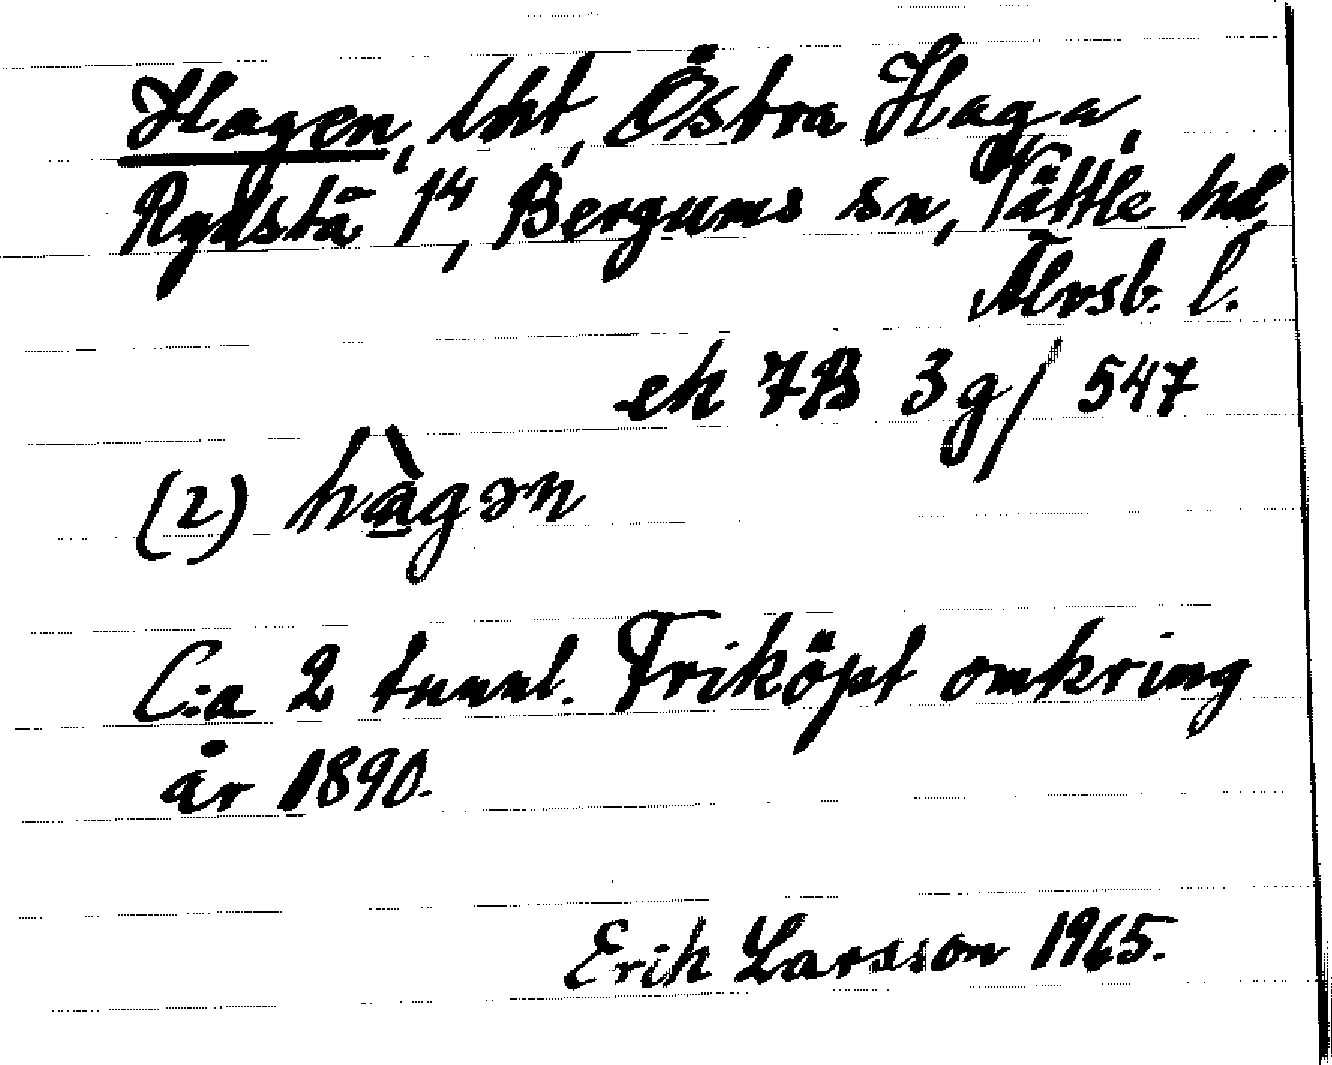 Hagen, lht, Östra Haga,
Rydstå 1⁴, Bergums sn, Vättle hd,
Älvsb. l.
ek 7B 3g/547
(2) hàgən
C:a 2 tunnl. Friköpt omkring
år 1890.
Erik Larsson 1965.